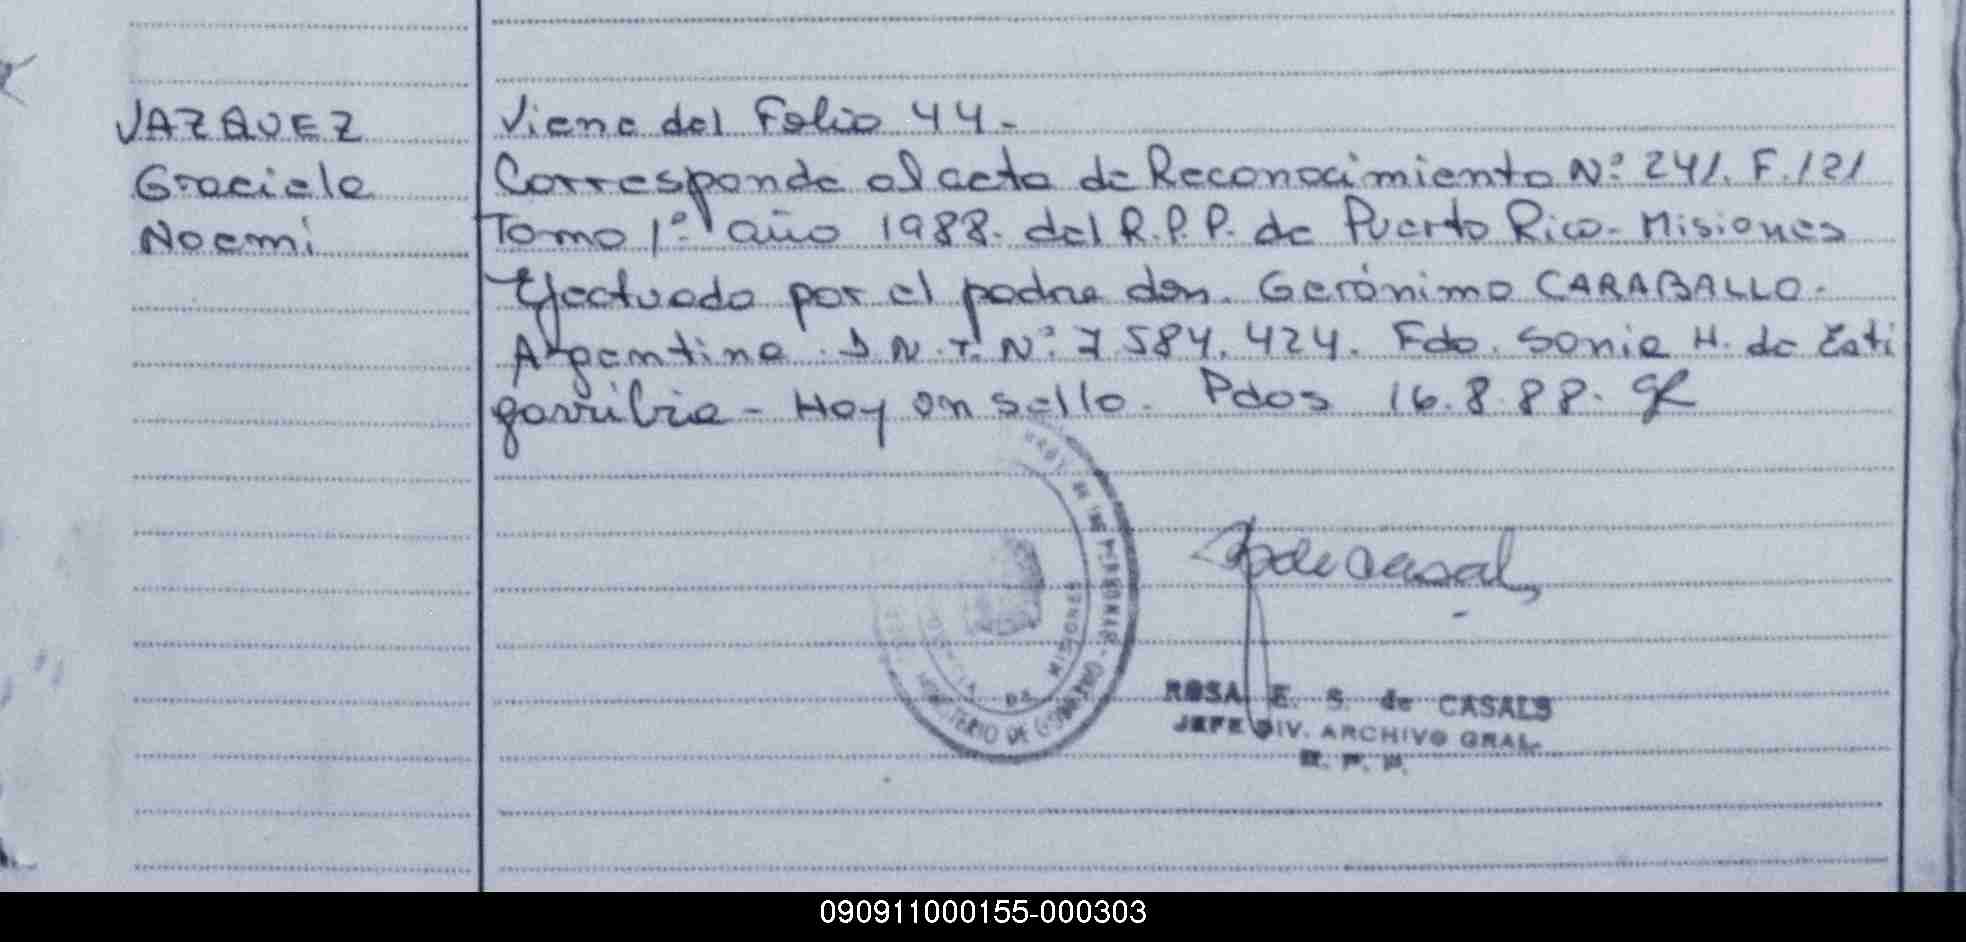 VAZQUEZ
Graciela
Noemi
Viene del Folio 44.-
Corresponde al acta de Reconocimiento Nº 241. F. 121
Tomo 1º año 1988. del R.P.P. de Puerto Rico - Misiones
Efectuado por el padre don. Gerónimo CARABALLO.
Argentino. D.N.I. Nº 7.584.424. Fdo. Sonia H. de Esti
garribia - Hay un sello. Pdos 16.8.88.
MINISTERIO DE GOBIERNO
PROVINCIA DE MISIONES
DE LAS PERSONAS
ROSA E. S. de CASALS
JEFE DIV. ARCHIVO GRAL.
R. P. P.
090911000155-000303